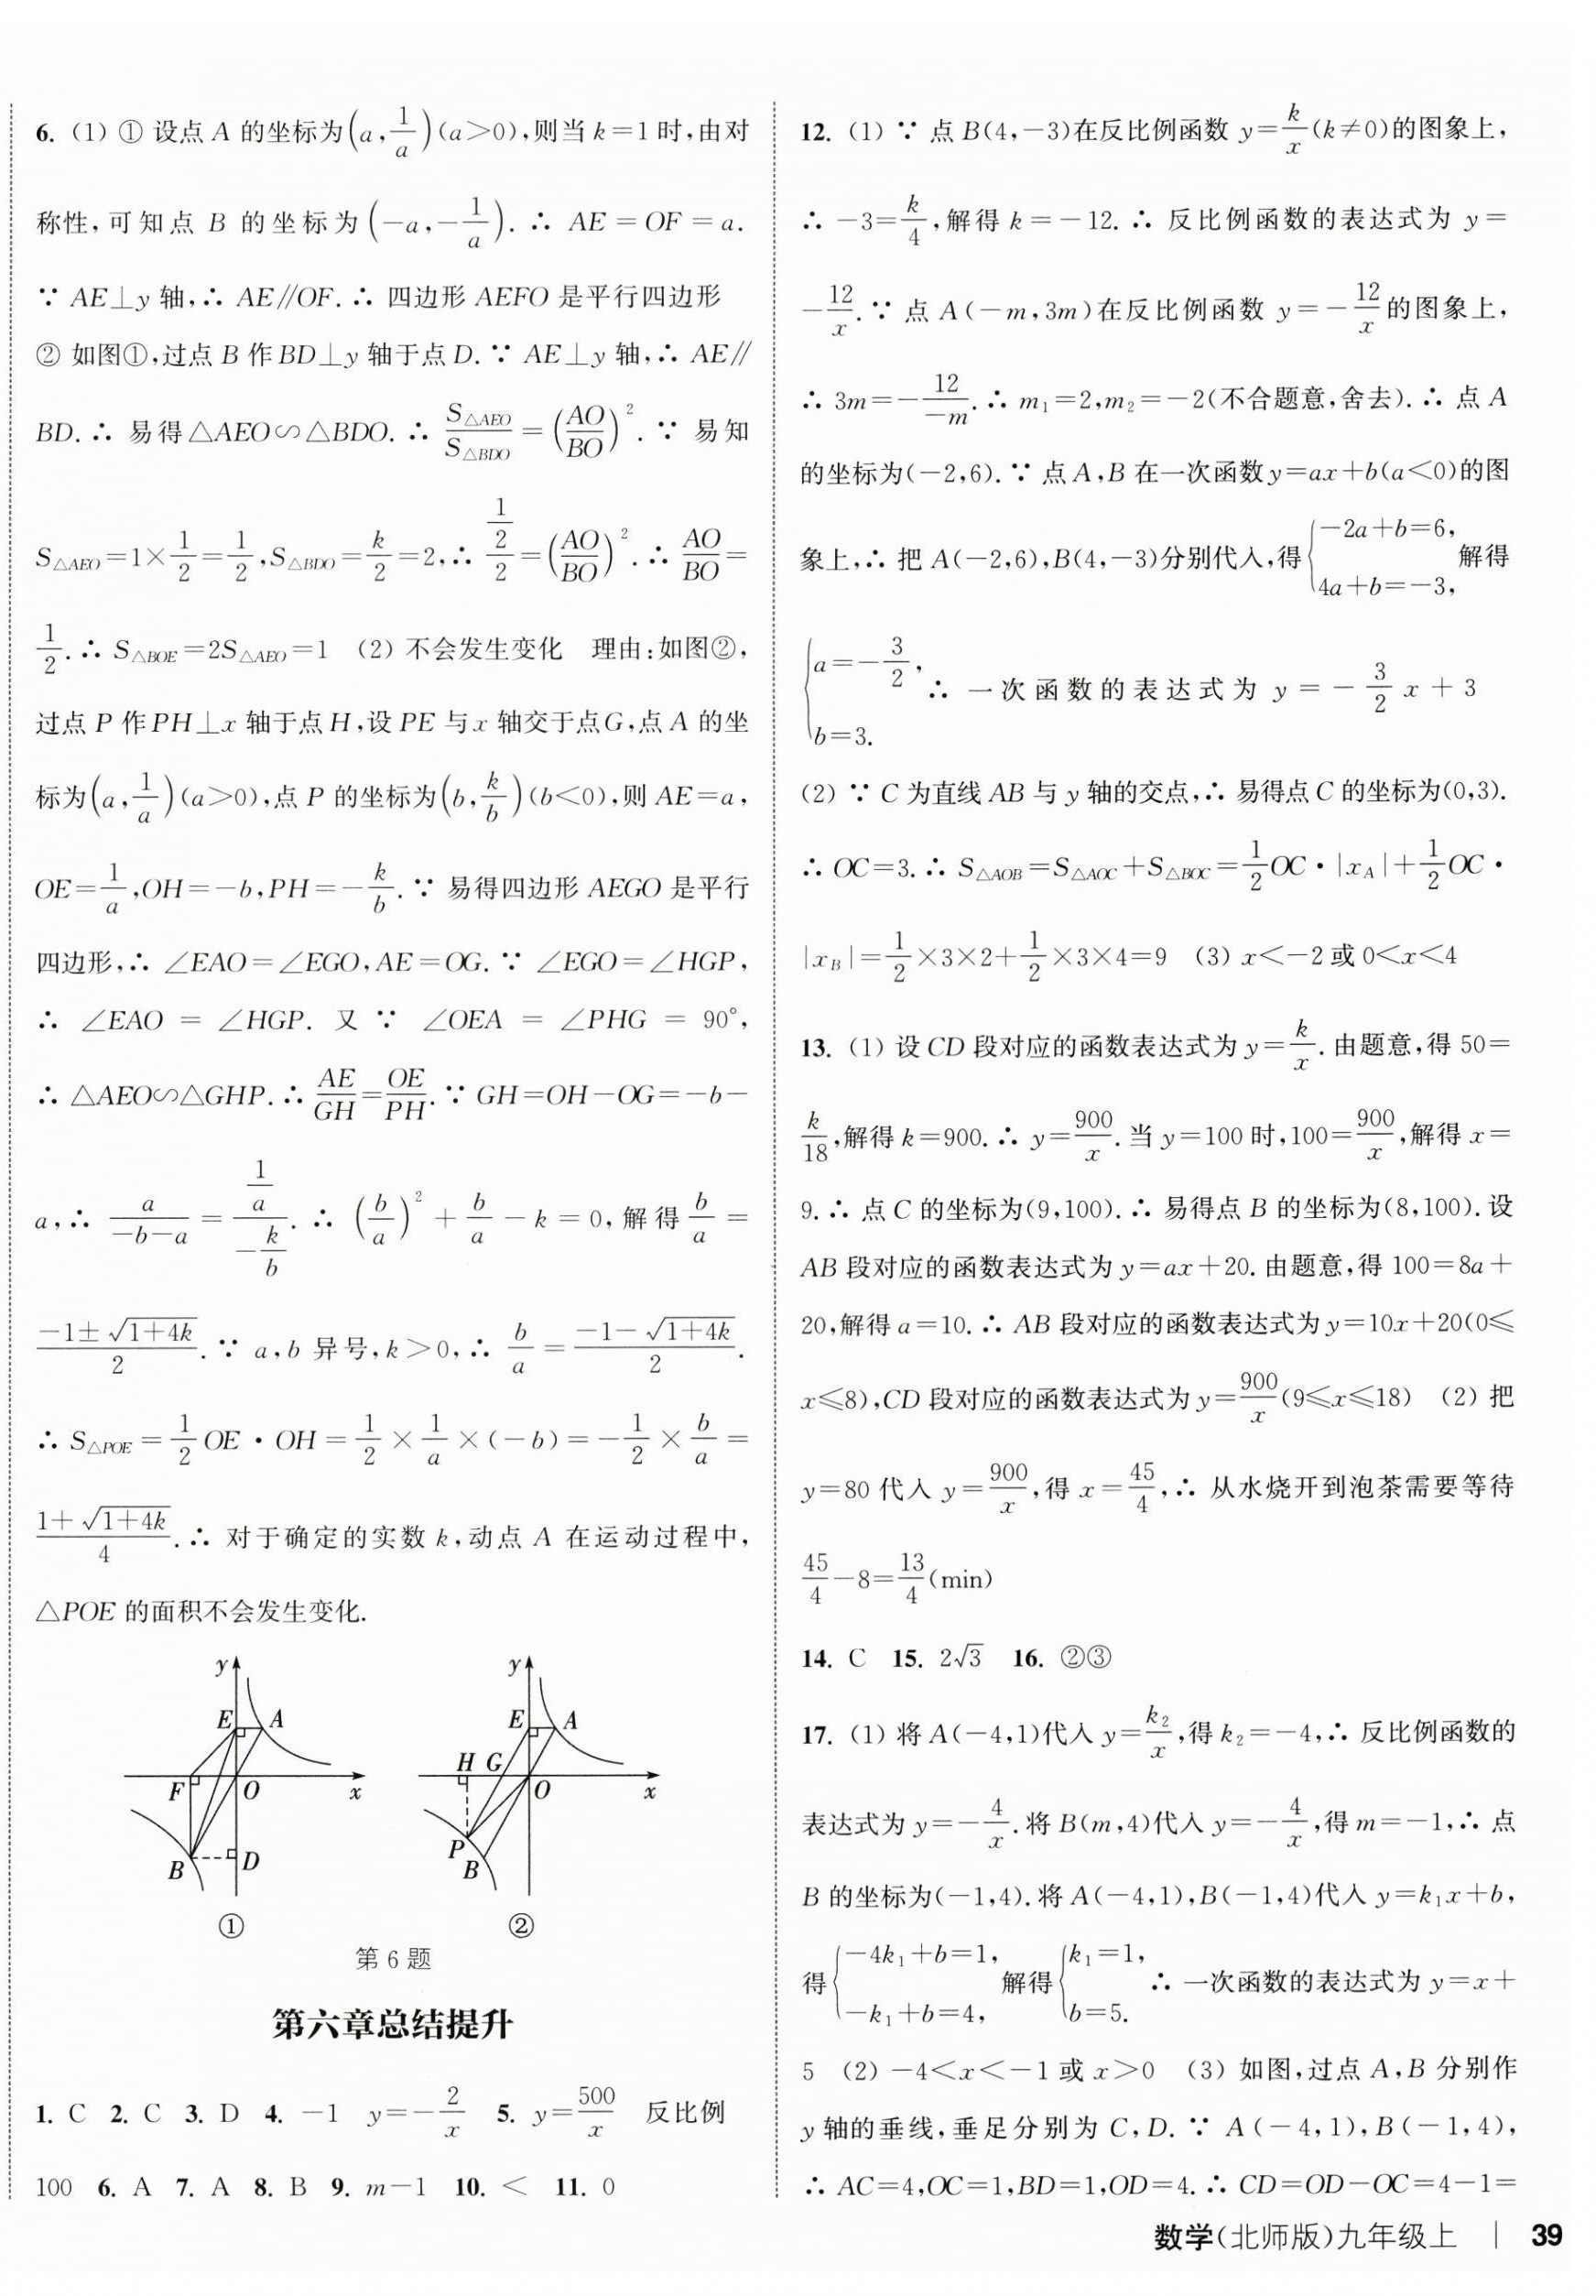 6. (1) ① 设点 A 的坐标为(a,1/a)(a>0),则当 k=1 时,由对
称性,可知点 B 的坐标为(-a,-1/a). ∴ AE=OF=a.
∵ AE⊥y 轴,∴ AE∥OF. ∴ 四边形 AEFO 是平行四边形
② 如图①,过点 B 作 BD⊥y 轴于点 D. ∵ AE⊥y 轴,∴ AE∥
BD. ∴ 易得△AEO∽△BDO. ∴ S△AEO/S△BDO=(AO/BO)². ∵ 易知
S△AEO=1×1/2=1/2,S△BDO=k/2=2,∴ (1/2)/2=(AO/BO)². ∴ AO/BO=
1/2. ∴ S△BOE=2S△AEO=1 (2) 不会发生变化 理由:如图②,
过点 P 作 PH⊥x 轴于点 H,设 PE 与 x 轴交于点 G,点 A 的坐
标为(a,1/a)(a>0),点 P 的坐标为(b,k/b)(b<0),则 AE=a,
OE=1/a,OH=-b,PH=-k/b. ∵ 易得四边形 AEGO 是平行
四边形,∴ ∠EAO=∠EGO,AE=OG. ∵ ∠EGO=∠HGP,
∴ ∠EAO=∠HGP. 又 ∵ ∠OEA=∠PHG=90°,
∴ △AEO∽△GHP. ∴ AE/GH=OE/PH. ∵ GH=OH-OG=-b-
a,∴ a/(-b-a)=(1/a)/(-k/b). ∴ (b/a)²+b/a-k=0,解得 b/a=
(-1±√(1+4k))/2. ∵ a,b 异号,k>0,∴ b/a=(-1-√(1+4k))/2.
∴ S△POE=1/2 OE·OH=1/2×1/a×(-b)=-1/2×b/a=
(1+√(1+4k))/4. ∴ 对于确定的实数 k,动点 A 在运动过程中,
△POE 的面积不会发生变化.
y E A F O x B D ①
y E A H G O x P B ②
第 6 题
第六章总结提升
1. C 2. C 3. D 4. -1 y=-2/x 5. y=500/x 反比例
100 6. A 7. A 8. B 9. m-1 10. < 11. 0
12. (1) ∵ 点 B(4,-3)在反比例函数 y=k/x(k≠0)的图象上,
∴ -3=k/4,解得 k=-12. ∴ 反比例函数的表达式为 y=
-12/x. ∵ 点 A(-m,3m)在反比例函数 y=-12/x的图象上,
∴ 3m=-12/(-m). ∴ m₁=2,m₂=-2(不合题意,舍去). ∴ 点 A
的坐标为(-2,6). ∵ 点 A,B 在一次函数 y=ax+b(a<0)的图
象上,∴ 把 A(-2,6),B(4,-3)分别代入,得{-2a+b=6, 4a+b=-3, 解得
{a=-3/2, b=3. ∴ 一次函数的表达式为 y=-3/2 x+3
(2) ∵ C 为直线 AB 与 y 轴的交点,∴ 易得点 C 的坐标为(0,3).
∴ OC=3. ∴ S△AOB=S△AOC+S△BOC=1/2 OC·|xA|+1/2 OC·
|xB|=1/2×3×2+1/2×3×4=9 (3) x<-2 或 0<x<4
13. (1) 设 CD 段对应的函数表达式为 y=k/x. 由题意,得 50=
k/18,解得 k=900. ∴ y=900/x. 当 y=100 时,100=900/x,解得 x=
9. ∴ 点 C 的坐标为(9,100). ∴ 易得点 B 的坐标为(8,100). 设
AB 段对应的函数表达式为 y=ax+20. 由题意,得 100=8a+
20,解得 a=10. ∴ AB 段对应的函数表达式为 y=10x+20(0≤
x≤8),CD 段对应的函数表达式为 y=900/x(9≤x≤18) (2) 把
y=80 代入 y=900/x,得 x=45/4,∴ 从水烧开到泡茶需要等待
45/4-8=13/4(min)
14. C 15. 2√3 16. ②③
17. (1) 将 A(-4,1)代入 y=k₂/x,得 k₂=-4,∴ 反比例函数的
表达式为 y=-4/x. 将 B(m,4)代入 y=-4/x,得 m=-1,∴ 点
B 的坐标为(-1,4). 将 A(-4,1),B(-1,4)代入 y=k₁x+b,
得{-4k₁+b=1, -k₁+b=4, 解得{k₁=1, b=5. ∴ 一次函数的表达式为 y=x+
5 (2) -4<x<-1 或 x>0 (3) 如图,过点 A,B 分别作
y 轴的垂线,垂足分别为 C,D. ∵ A(-4,1),B(-1,4),
∴ AC=4,OC=1,BD=1,OD=4. ∴ CD=OD-OC=4-1=
数学(北师版)九年级上 | 39